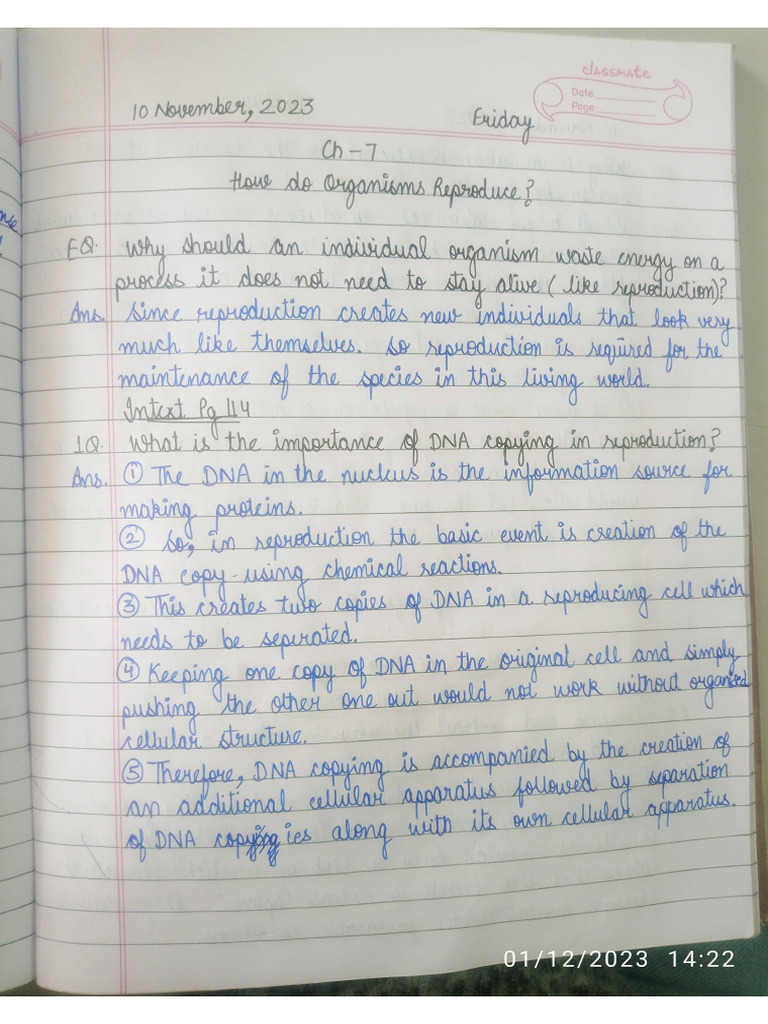 classmate
Date
Page
10 November, 2023 Friday
Ch-7
How do Organisms Reproduce?
EQ. Why should an individual organism waste energy on a
process it does not need to stay alive (like reproduction)?
Ans. Since reproduction creates new individuals that look very
much like themselves. So reproduction is required for the
maintenance of the species in this living world.
Intext Pg 114
1Q. What is the importance of DNA copying in reproduction?
Ans. ① The DNA in the nucleus is the information source for
making proteins.
② So, in reproduction the basic event is creation of the
DNA copy using chemical reactions.
③ This creates two copies of DNA in a reproducing cell which
needs to be seperated.
④ Keeping one copy of DNA in the original cell and simply
pushing the other one out would not work without organized
cellular structure.
⑤ Therefore, DNA copying is accompanied by the creation of
an additional cellular apparatus followed by separation
of DNA copies along with its own cellular apparatus.
01/12/2023 14:22